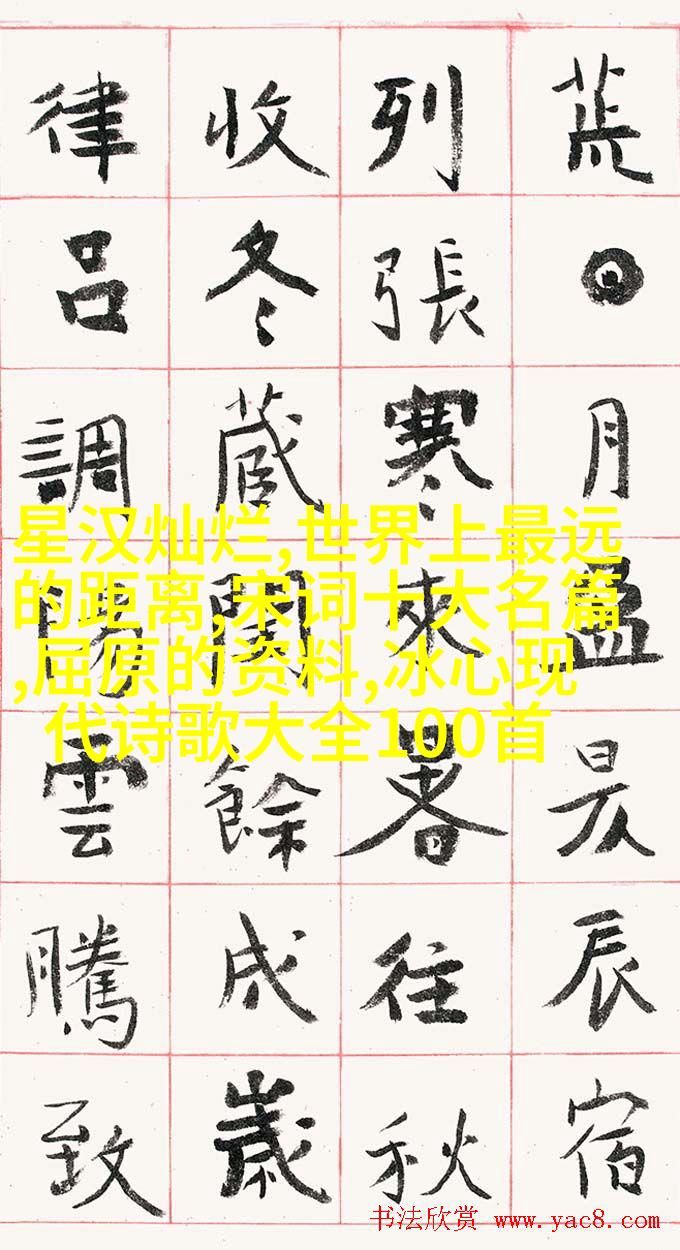 荒日月盈昃辰宿
列張寒來暑往秋
收冬藏閏餘成歲
律呂調陽雲騰致
星汉灿烂,世界上最远
的距离,宋词十大名篇
,屈原的资料,冰心现
代诗歌大全100首
书法欣赏 www.yac8.com